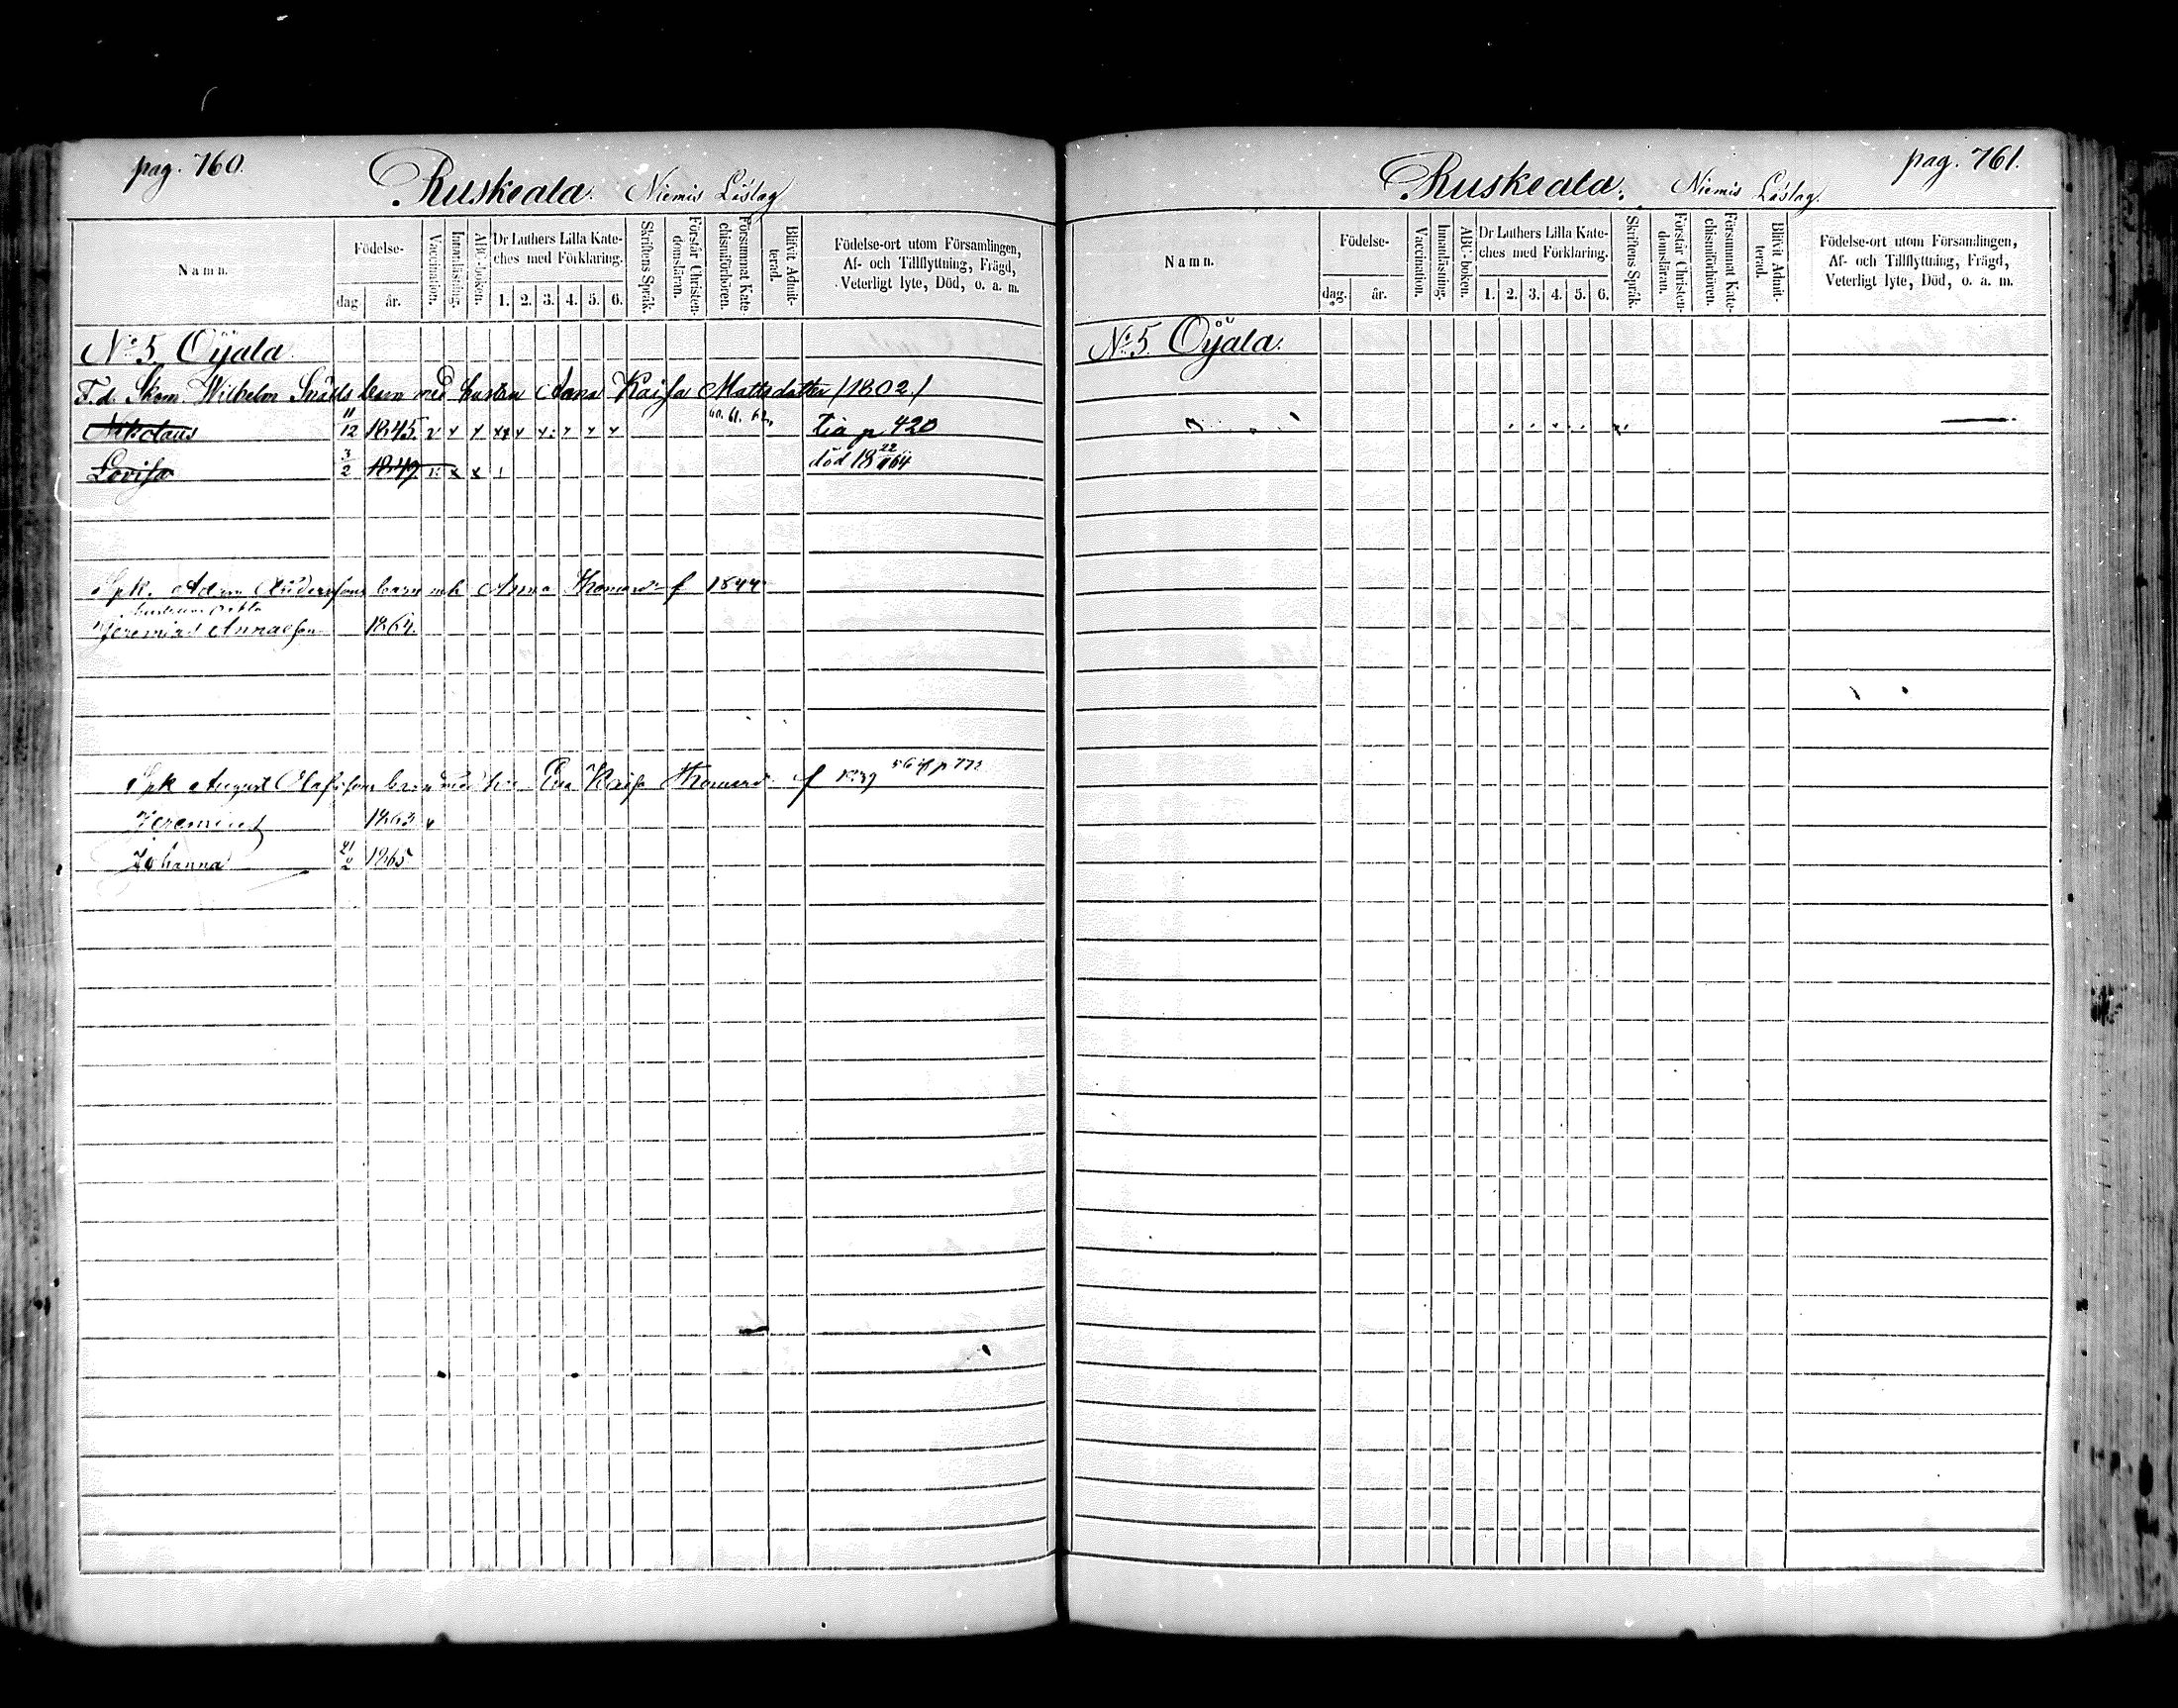 pag. 760.
Ruskeala. Niemis Läslag
Namn.
Födelse-
dag
år.
Vaccination.
Innanläsning.
ABC-boken.
Dr Luthers Lilla Kate-
ches med Förklaring.
1. 2. 3. 4. 5. 6.
Skriftens Språk.
Förstår Christen-
domsläran.
Försummat Kate-
chismiförhören.
Blifvit Admit-
terad.
Födelse-ort utom Församlingen,
Af- och Tillflyttning, Frägd,
Veterligt lyte, Död, o. a. m.
No 5 Öijala
F.d. Skom. Wilhelm Snälls barn med hustrun Anna Kaisa Mattsdotter /1802./
Nikolaus 11/12 1845. v x x xx x x: x x x 60. 61. 62. p 420
Lovisa 3/2 1849. v: x x ı död 18 22/ 64
Spk. Adam Anderssons barn Anna Thomasd: f 1844
Jeremias Annaeson 1864.
Spk August Olofssons barn med Eva Kaisa Thomasd f 1839 p 772
Jeremias 1863 v
Johanna 21/2 1865.
pag. 761.
Ruskeala. Niemis Läslag.
Namn.
Födelse-
dag.
år.
Vaccination.
Innanläsning.
ABC-boken.
Dr Luthers Lilla Kate-
ches med Förklaring.
1. 2. 3. 4. 5. 6.
Skriftens Språk.
Förstår Christen-
domsläran.
Försummat Kate-
chismiförhören.
Blifvit Admit-
terad.
Födelse-ort utom Församlingen,
Af- och Tillflyttning, Frägd,
Veterligt lyte, Död, o. a. m.
No 5. Öijala.